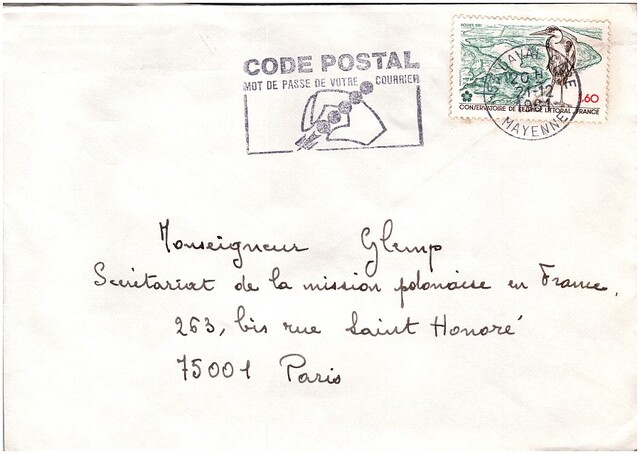 CODE POSTAL
MOT DE PASSE DE VOTRE COURRIER
LAVAL
20 H
21-12
1981
MAYENNE
1,60
CONSERVATOIRE DE L'ESPACE LITTORAL FRANCE
Monseigneur Glemp
Secrétariat de la mission polonaise en France.
263, bis rue Saint Honoré
75001 Paris